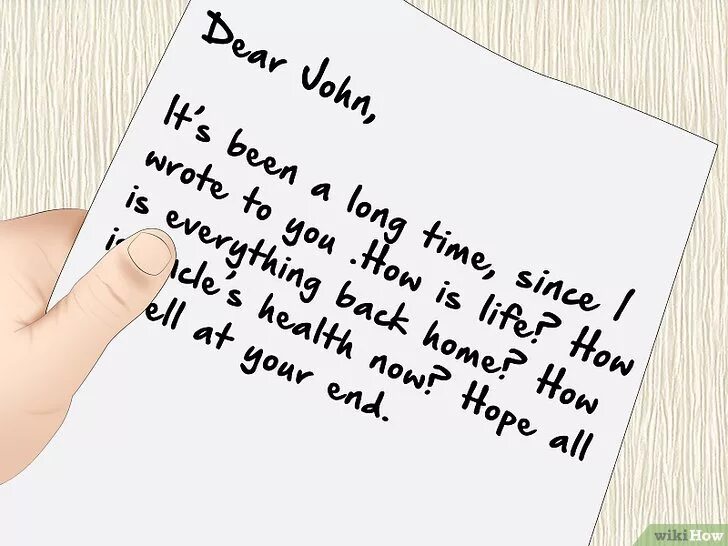 Dear John,
It's been a long time, since I
wrote to you .How is life? How
is everything back home? How
health now? Hope all
at your end.
wikiHow